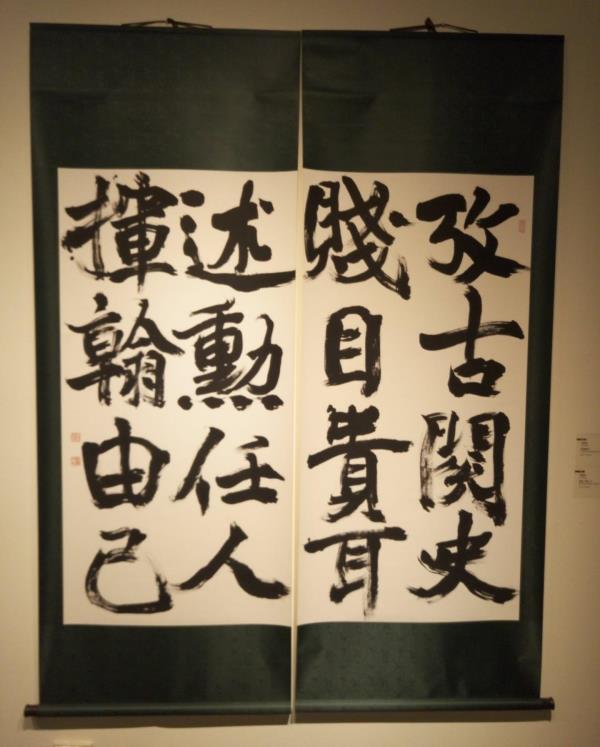 攷古閱史
賤目貴耳
述勲任人
揮翰由己